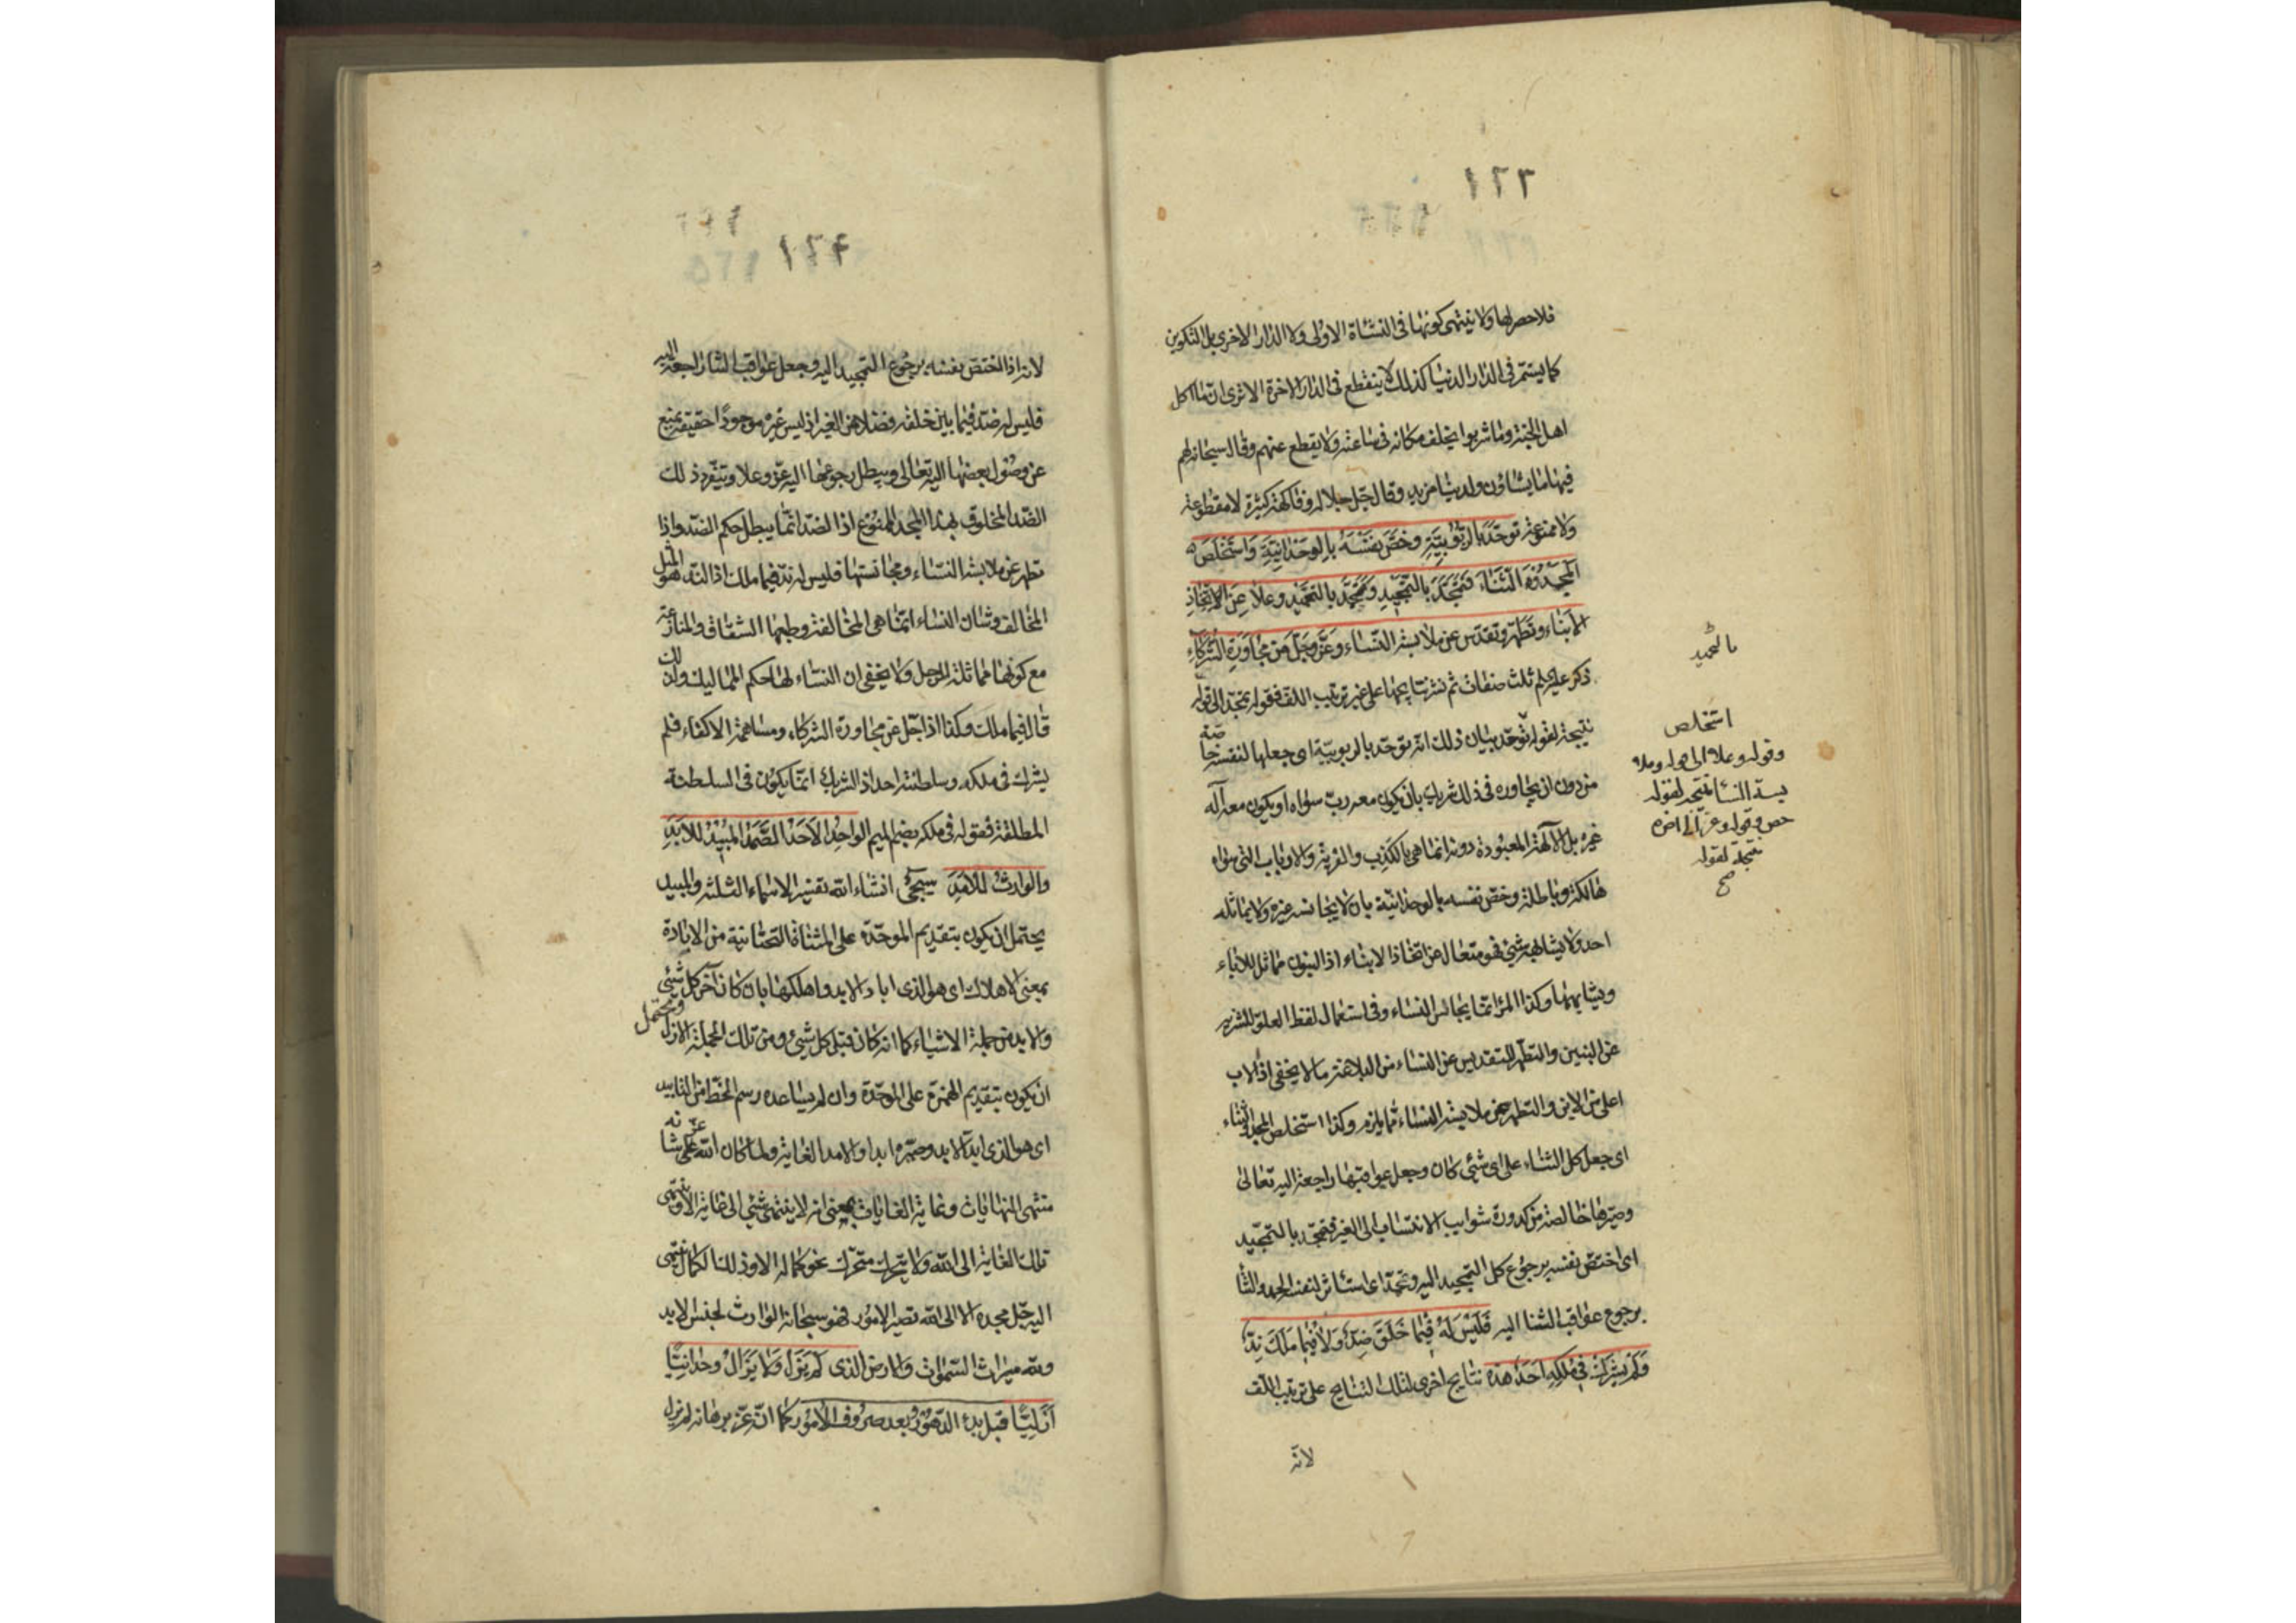 ١٢٦
فلا حصر لها ولا ينتهى كونها فى النشأة الاولى ولا الدار الاخرى بل التكوين
كما يستمر فى الدار الدنيا كذلك لا ينقطع فى الدار الاخرة الا ترى ان ما اكل
اهل الجنة وما شربوا يخلف مكانه فى ساعته ولا يقطع عنهم وقال سبحانه لهم
فيها ما يشاؤن ولدينا مزيد وقال جل جلاله وفاكهة كثيرة لا مقطوعة
ولا ممنوعة توحّد بالربوبيّة وخصّ نفسه بالوحدانيّة واستخلص
المجد والثناء فتمجّد بالتمجيد وتحمّد بالتحميد وعلا عن اتخاذ
الابناء وتطهّر وتقدّس عن ملابسة النساء وعزّ وجلّ عن مجاورة الشركاء
ذكر عليه السلم ثلث صفات ثم نشر نتايجها على غير ترتيب اللف فقوله تمجّد الى قوله
بالتحميد
نتيجة لقوله توحّد بيان ذلك انه توحّد بالربوبيّة اى جعلها لنفسه خاصة
استخلص
وقوله وعلا الى قوله وملا
بسة النساء نتيجة لقوله
خص وقوله وعز الى اخره
نتيجة لقوله
صح
من دون ان يجاوره فى ذلك شريك بان يكون معه ربّ سواه او يكون معه آله
غيره بل الآلهة المعبودة دونه انما هى بالكذب والفرية والارباب التى سواه
هالكة وباطلة وخصّ نفسه بالوحدانيّة بان لا يجانسه غيره ولا يماثله
احد ولا يشابهه شئ فهو متعال عن اتخاذ الابناء اذ البنون مماثل للاباء
ويشابهها وكذا المرء انما يجانس النساء وفى استعمال لفظ العلوّ للتنزيه
عن البنين والتطهّر للتقديس عن النساء من البلاغة ما لا يخفى اذ الاب
اعلى من الابن والتطهر عن ملابسة النساء مما يلزم وكذا استخلص المجد والثناء
اى جعل كل الثناء على اى شئ كان وجعل عواقبها راجعة اليه تعالى
وصيّرها خالصة من كدورة شوايب الانتساب الى الغير فتمجّد بالتمجيد
اى اختصّ نفسه برجوع كل التمجيد اليه وتحمّد اى استأثر لنفسه الحمد والثنا
برجوع عواقب الثنا اليه فليس له فيما خلق ضدّ ولا فيما ملك ندّ
ولم يشرك فى ملكه احد هذه نتايج اخرى لتلك النتايج على ترتيب اللف
لانه
لانه اذا اختصّ نفسه برجوع التمجيد اليه وجعل عواقب الثنا راجعة اليه
فليس له ضدّ فيما بين خلقه فضلا عن الغير اذ ليس غيره موجودا حقيقة يمنع
عن وصول بعضها اليه تعالى ويبطل رجوعها اليه عزّ وعلا ويتفرد ذلك
الضدّ المخلوق بهذا المجد الممنوع اذا الضدّ انما يبطل حكم الضدّ واذا
تطهر عن ملابسة النساء ومجانستها فليس له ندّ فيما ملك اذ الندّ هو المثل
المخالف وشان النساء انما هى المخالفة وطبعها الشقاق والمنازعة
مع كونها مماثلة للرجل ولا يخفى ان النساء لها حكم المماليك ولذلك
قال فيما ملك وكذا اذا جلّ عن مجاورة الشركاء ومساهمة الاكفاء فلم
يشرك فى ملكه وسلطنته احد اذ الشريك انما يكون فى السلطنة
المطلقة فقوله فى ملكه بضم الميم الواحد الاحد الصّمد المبيد للابد
والوارث للامد سيجئ انشاء الله تفسير الاسماء الثلثة والمبيد
يحتمل ان يكون بتقديم الموحّدة على المثناة التحتانية من الابادة
بمعنى الاهلاك اى هو الذى اباد الابد واهلكها بان كان آخر كل شئ
والابد من جملة الاشياء كما انه كان قبل كل شئ ومن تلك الجملة الازل ويحتمل
ان يكون بتقديم الهمزة على الموحّدة وان لم يساعده رسم الخط من التابيد
اى هو الذى ابّد الابد وصيّره ابدا والامد الغاية ولما كان الله عزّ شانه
منتهى النهايات وغاية الغايات بمعنى انه لا ينتهى شئ الى غاية الا وتنتهى
تلك الغاية الى الله ولا يتحرك متحرّك نحو كماله الا وذلك الكمال ينتهى
اليه جلّ مجده الا الى الله تصير الامور فهو سبحانه الوارث لجنس الابد
ولله ميراث السّموات والارض الذى لم يزل ولا يزال وحدانيّا
ازليّا قبل بدء الدهور وبعد صروف الامور كما انّه عزّ برهانه لم يزل